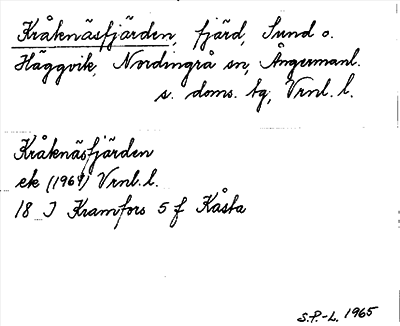 Kråknäsfjärden, fjärd, Sund o.
Häggvik, Nordingrå sn, Ångermanl.
s. doms. tg, Vrnl. l.
Kråknäsfjärden
ek (1961) Vrnl. l.
18 J Kramfors 5 f Kåsta
S.P.-L. 1965